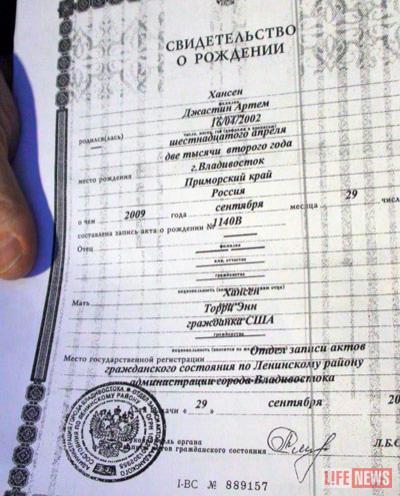 СВИДЕТЕЛЬСТВО
О РОЖДЕНИИ
Хансен
фамилия
Джастин Артем
16/04/2002
родился(лась)
шестнадцатого апреля
две тысячи второго года
г.Владивосток
место рождения
Приморский край
Россия
о чем 2009 года сентября месяца 29 числа
составлена запись акта о рождении № 1140В
Отец
фамилия
имя, отчество
гражданство
Хансен
Мать
Торри Энн
гражданка США
гражданство
Место государственной регистрации Отдел записи актов
гражданского состояния по Ленинскому району
администрации города Владивостока
29 сентября 20
органа
гражданского состояния
Л.Б.
I-ВС № 889157
LIFE NEWS